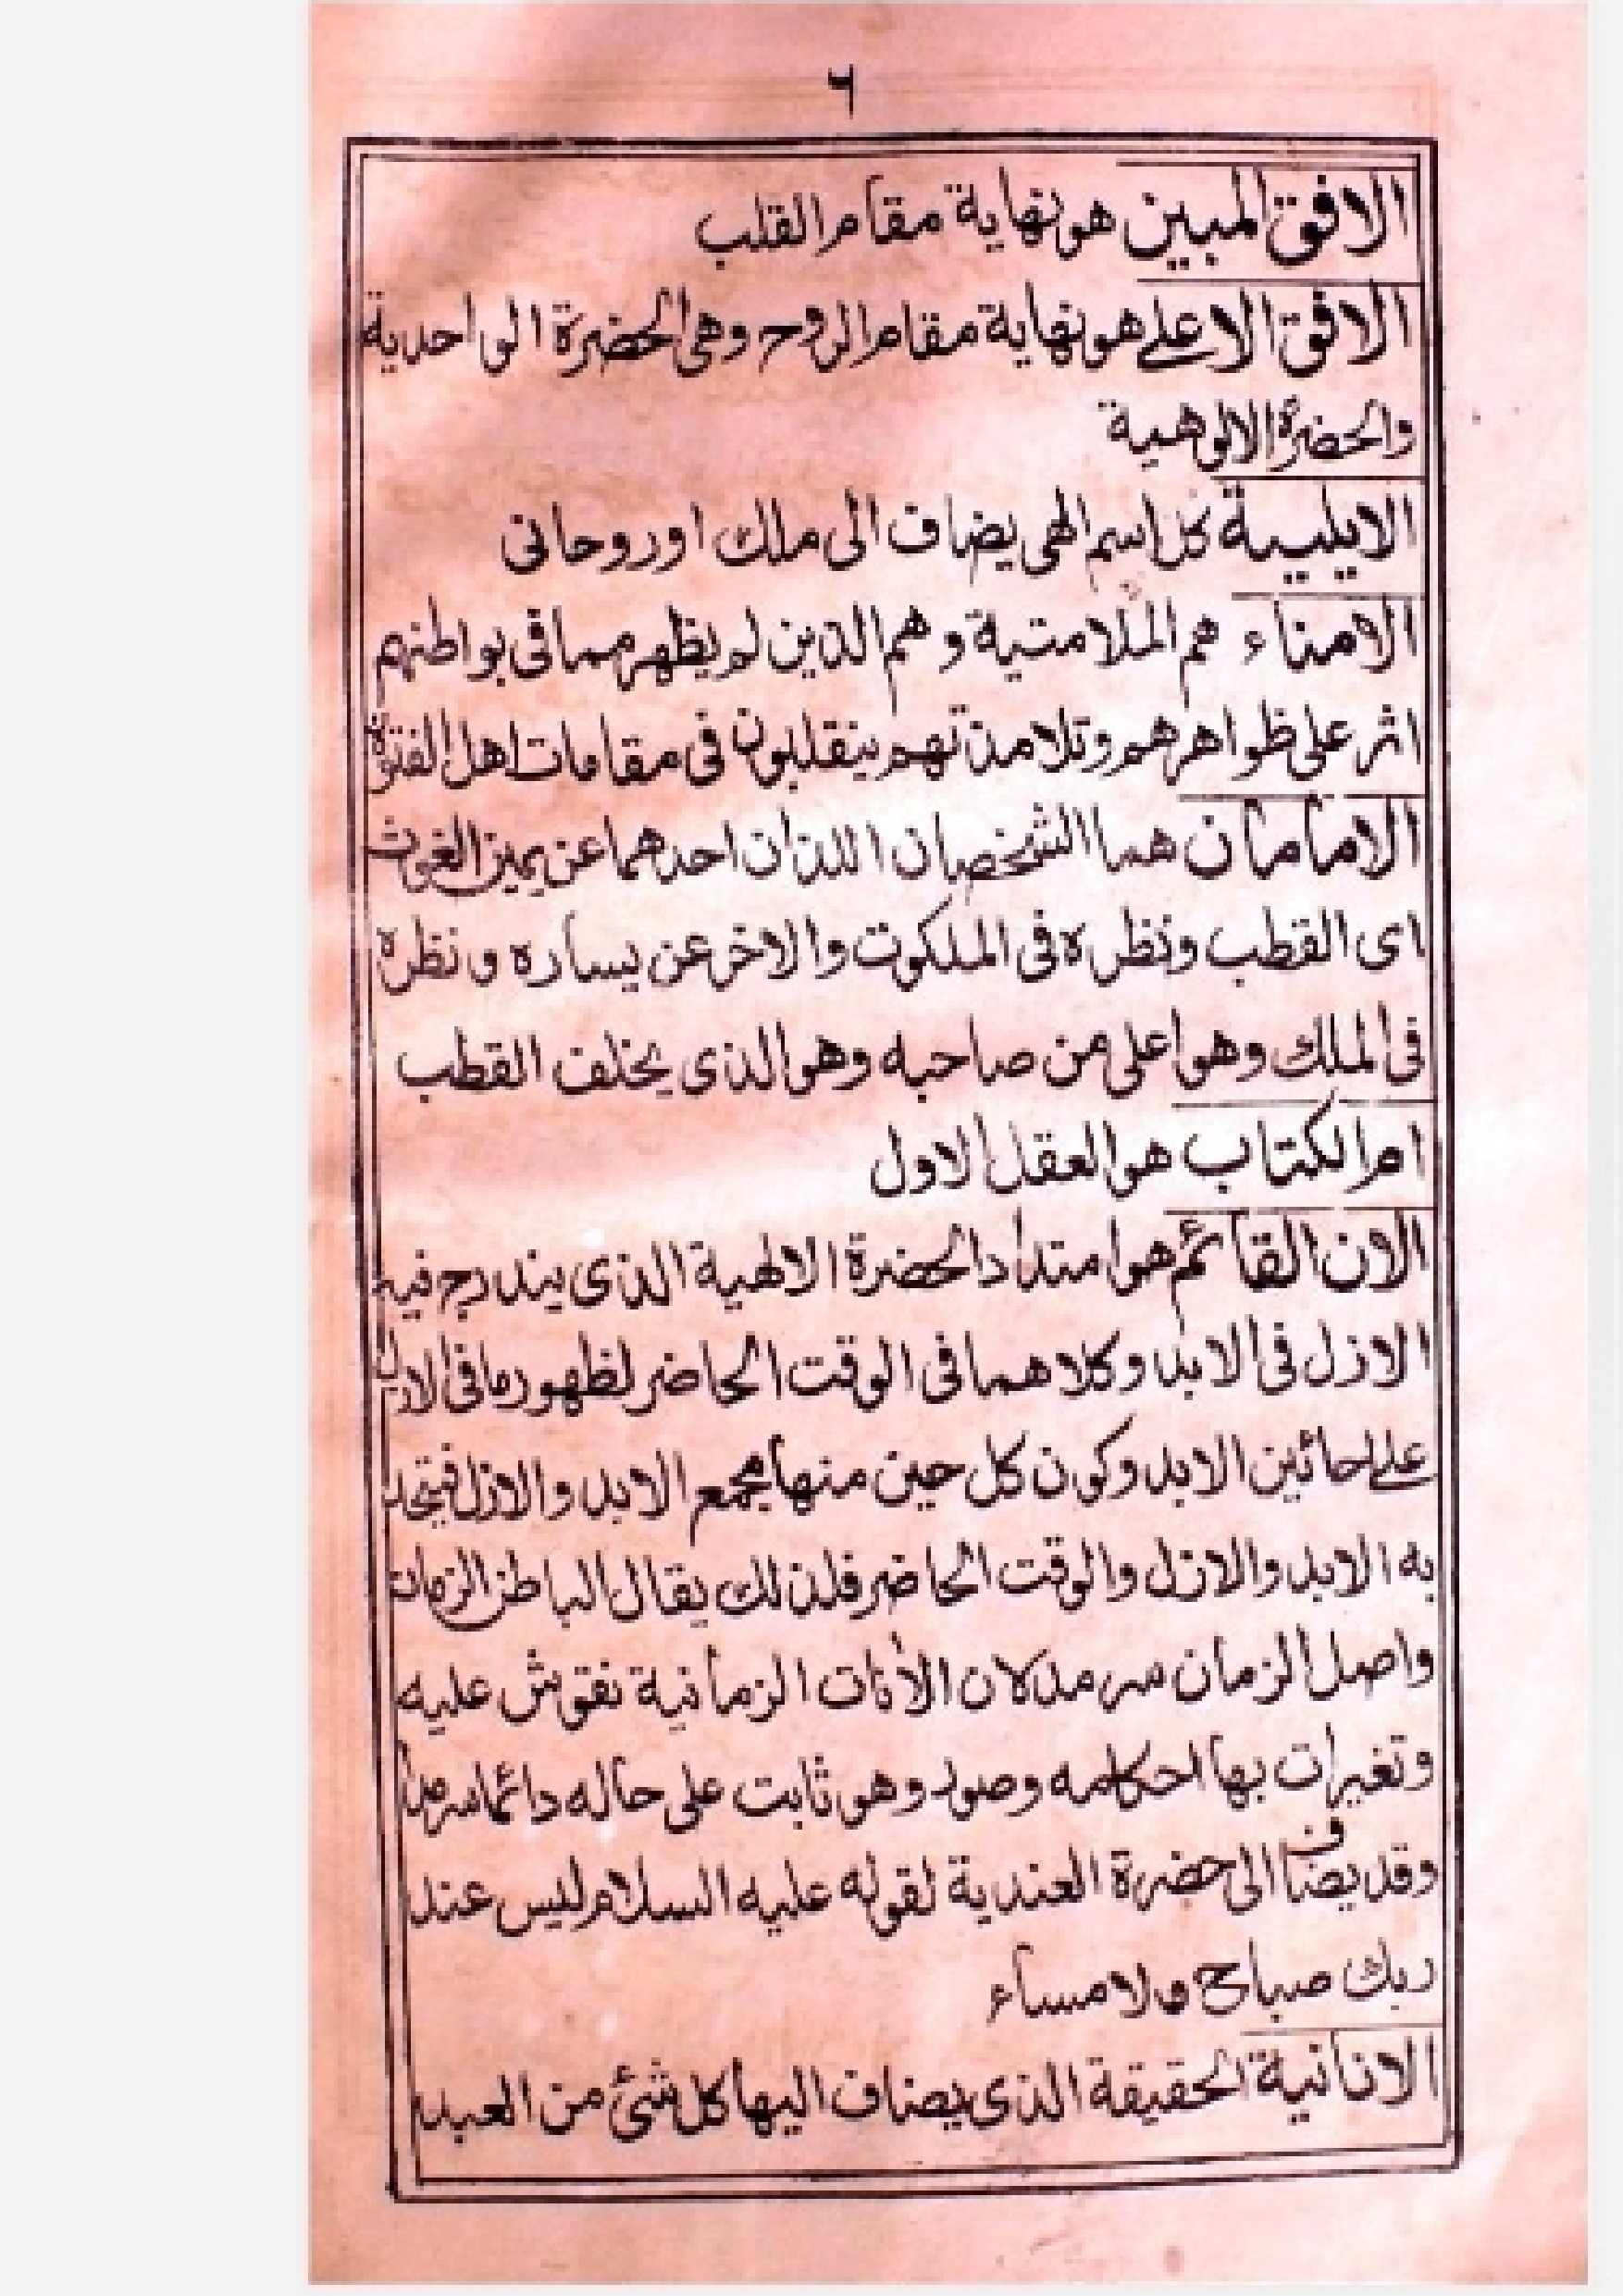 ٦
الافق المبين هو نهاية مقام القلب
الافق الاعلے هو نهاية مقام الروح وهى الحضرة الواحدية
والحضرة الالوهية
الايليية كل اسم الهى يضاف الى ملك اوروحانى
الامناء هم الملامتية وهم الذين لم يظهر مما فى بواطنهم
اثر على ظواهرهم وتلامذتهم ينقلبون فى مقامات اهل الفتوة
الامامان هما الشخصان اللذان احدهما عن يمين الغوث
اى القطب ونظره فى الملكوت والاخر عن يساره ونظره
فى الملك وهو اعلى من صاحبه وهو الذى يخلف القطب
ام الكتاب هو العقل الاول
الان القائم هو امتداد الحضرة الالهية الذى يندرج فيه
الازل فى الابد وكلاهما فى الوقت الحاضر لظهور ما فى الازل
علے احائين الابد وكون كل حين منها مجمع الابد والازل فيتحد
به الابد والازل والوقت الحاضر فلذلك يقال الباطن الزمان
واصل الزمان سرمد لان الأنات الزمانية نقوش عليه
وتغيرات بها احكامه وصور وهو ثابت على حاله دائما سرمدا
وقد يضاف الى حضرة العندية لقوله عليه السلام ليس عند
ربك صباح ولا مساء
الانانية الحقيقة الذى يضاف اليها كل شئ من العبد